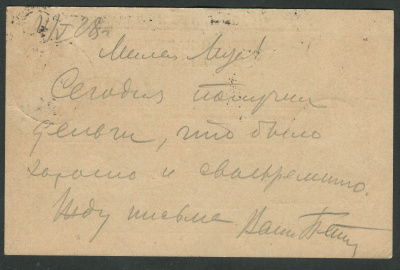 Милая Муся!
Сегодня получил
деньги, что было
хорошо и своевременно.
Жду письма Ваш